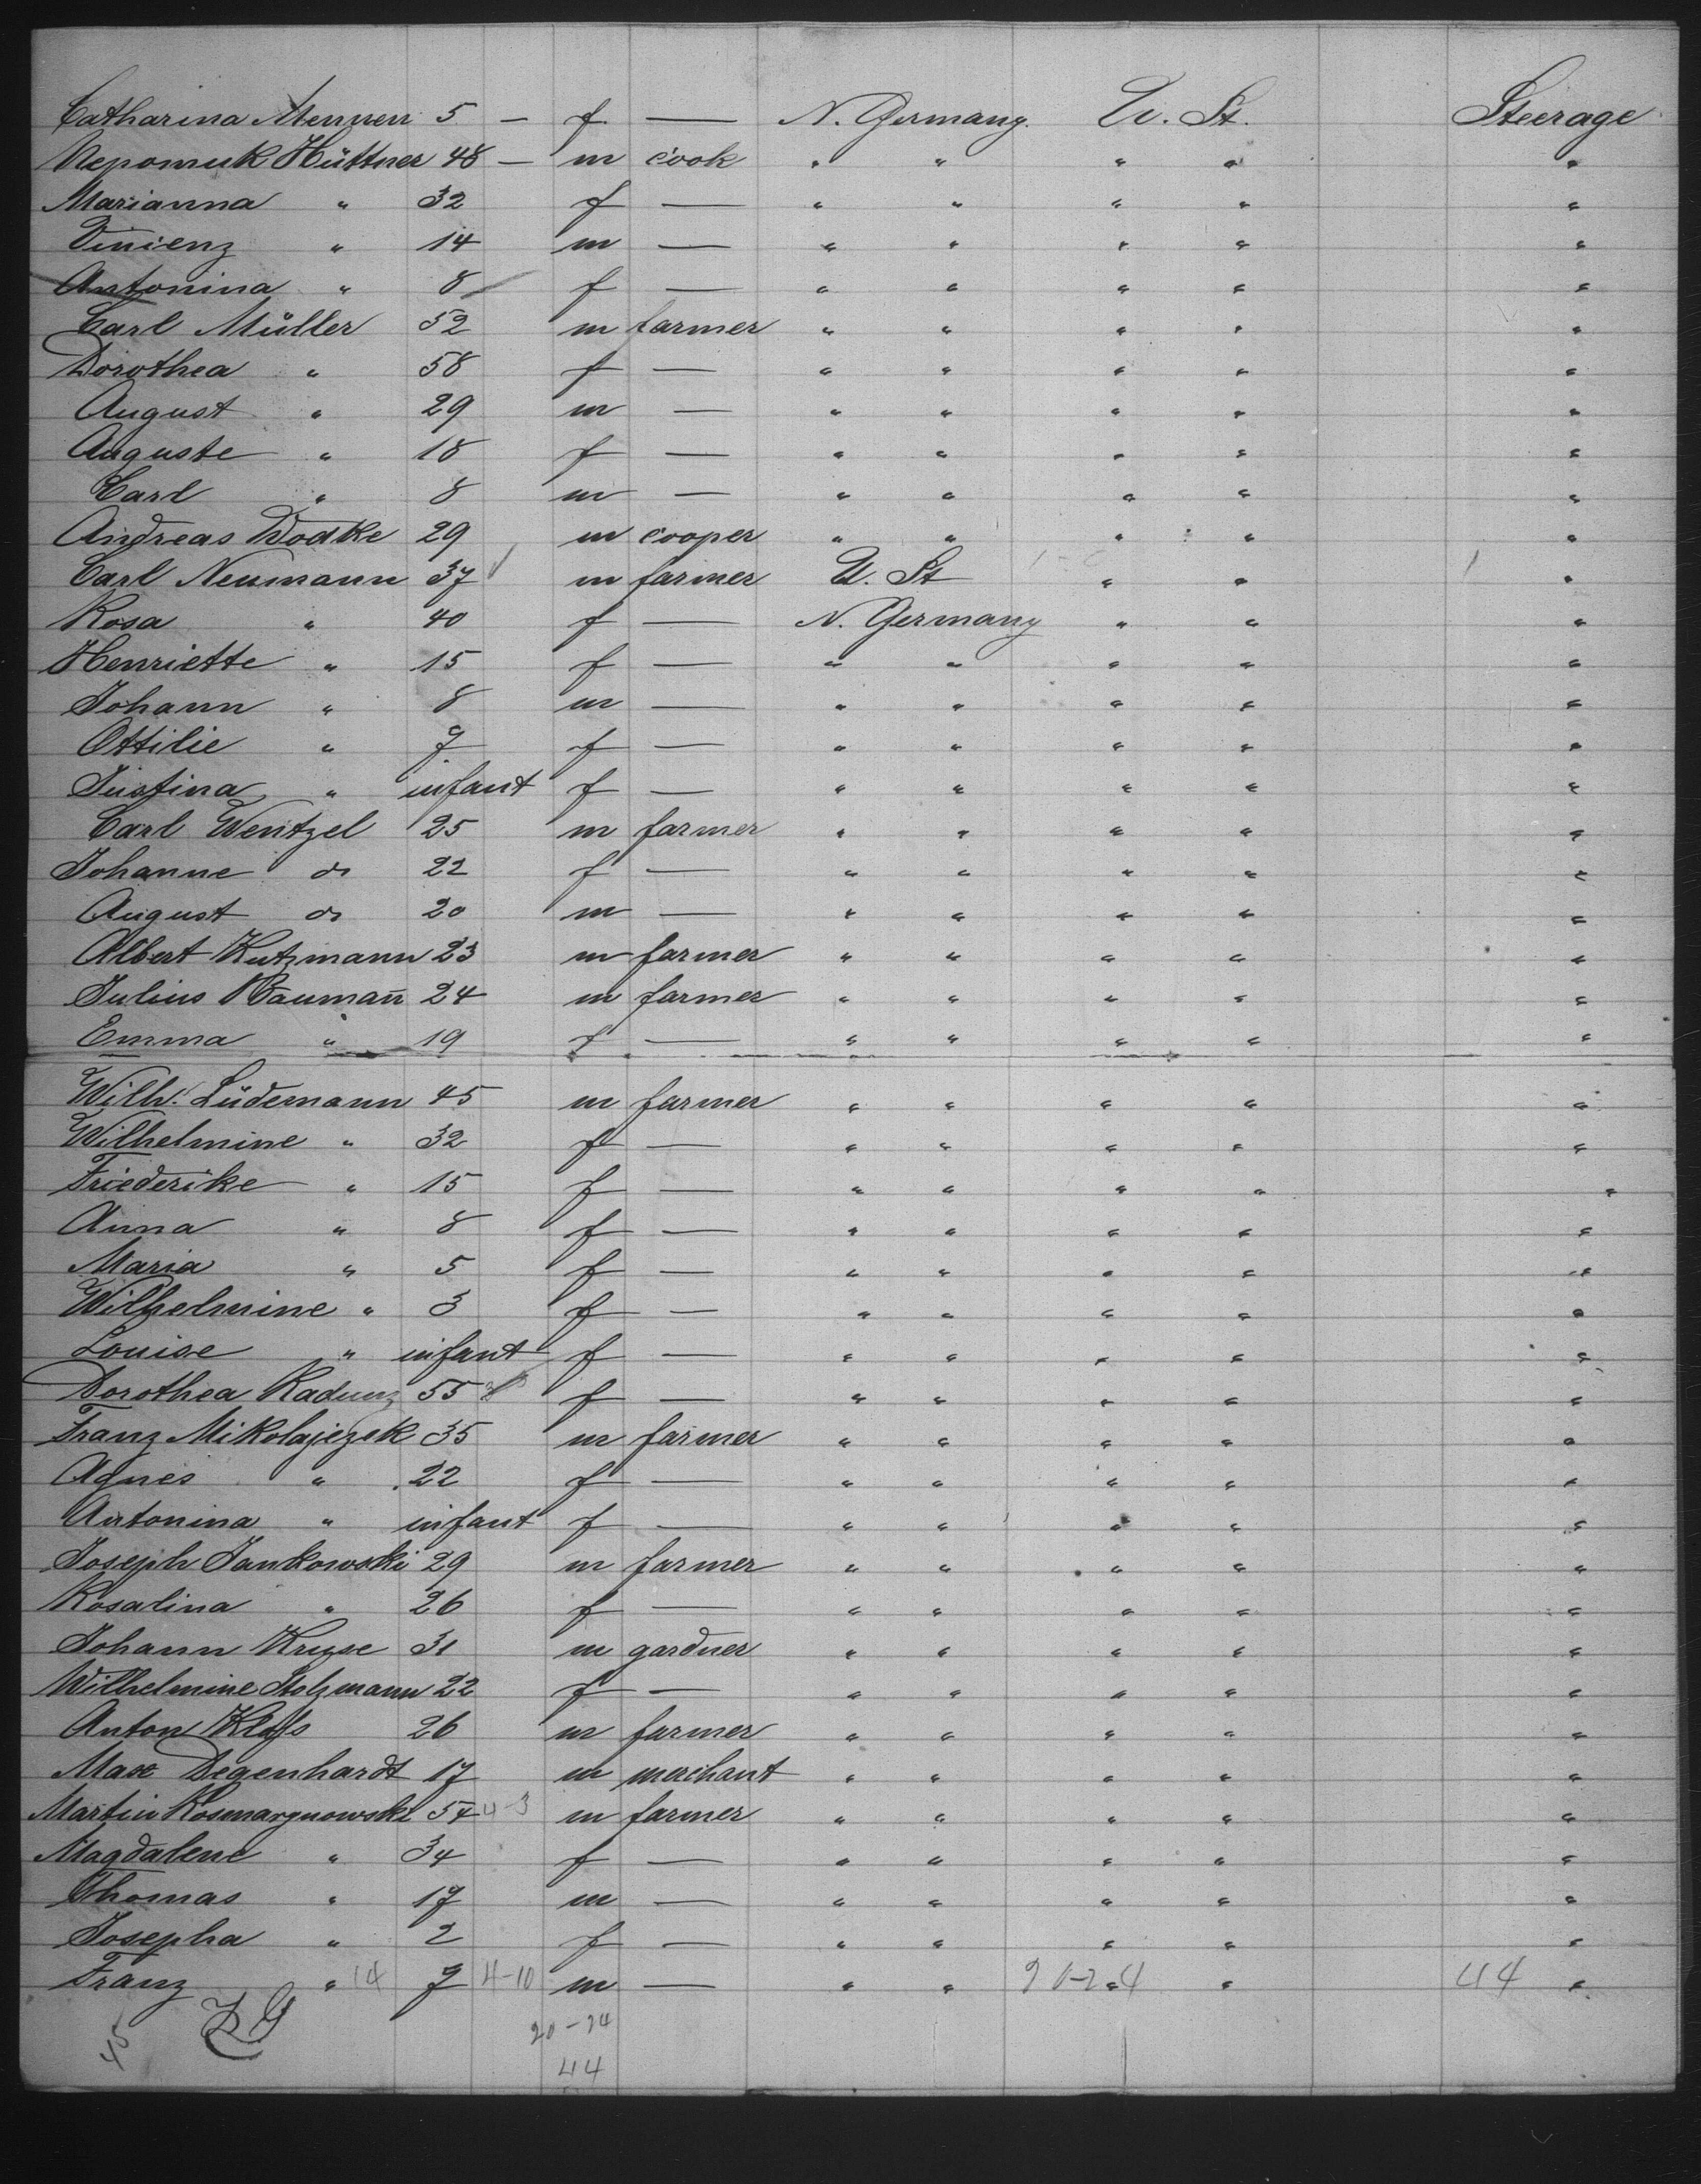 Catharina Mennen 5 — f — N. Germany. U. St. Steerage
Nepomuk Hüttner 48 — m cook " " " " "
Marianna " 32 f — " " " " "
Vinienz " 14 m — " " " " "
Antonina " 8 f — " " " " "
Carl Müller 52 m farmer " " " " "
Dorothea " 58 f — " " " " "
August " 29 m — " " " " "
Auguste " 18 f — " " " " "
Carl " 8 m — " " " " "
Andreas Wodke 29 m cooper " " " " "
Carl Neumann 37 m farmer U. St " " "
Rosa " 40 f — N. Germany " " "
Henriette " 15 f — " " " " "
Johann " 8 m — " " " " "
Ottilie " 7 f — " " " " "
Justina " infant f — " " " " "
Carl Wentzel 25 m farmer " " " " "
Johanne do 22 f — " " " " "
August do 20 m — " " " " "
Albert Kutzmann 23 m farmer " " " " "
Julius Baumañ 24 m farmer " " " " "
Emma " 19 f — " " " " "
Wilh. Lüdemann 45 m farmer " " " " "
Wilhelmine " 32 f — " " " " "
Friederike " 15 f — " " " " "
Anna " 8 f — " " " " "
Maria " 5 f — " " " " "
Wilhelmine " 3 f — " " " " "
Louise " infant f — " " " " "
Dorothea Radunz 55 f — " " " " "
Franz Mikolajezek 35 m farmer " " " " "
Agnes " 22 f — " " " " "
Antonina " infant f — " " " " "
Joseph Jankowski 29 m farmer " " " " "
Rosalina " 26 f — " " " " "
Johann Kruse 31 m gardner " " " " "
Wilhelmine Stolzmann 22 f — " " " " "
Anton 26 m farmer " " " " "
Max Degenhardt 17 m merchant " " " " "
Martin 54 4-3 m farmer " " " " "
Magdalene " 34 f — " " " " "
Thomas " 17 m — " " " " "
Josepha " 2 f — " " " " "
Franz " 14 7 4-10 m — " " " " 44 "
45 20-24
44